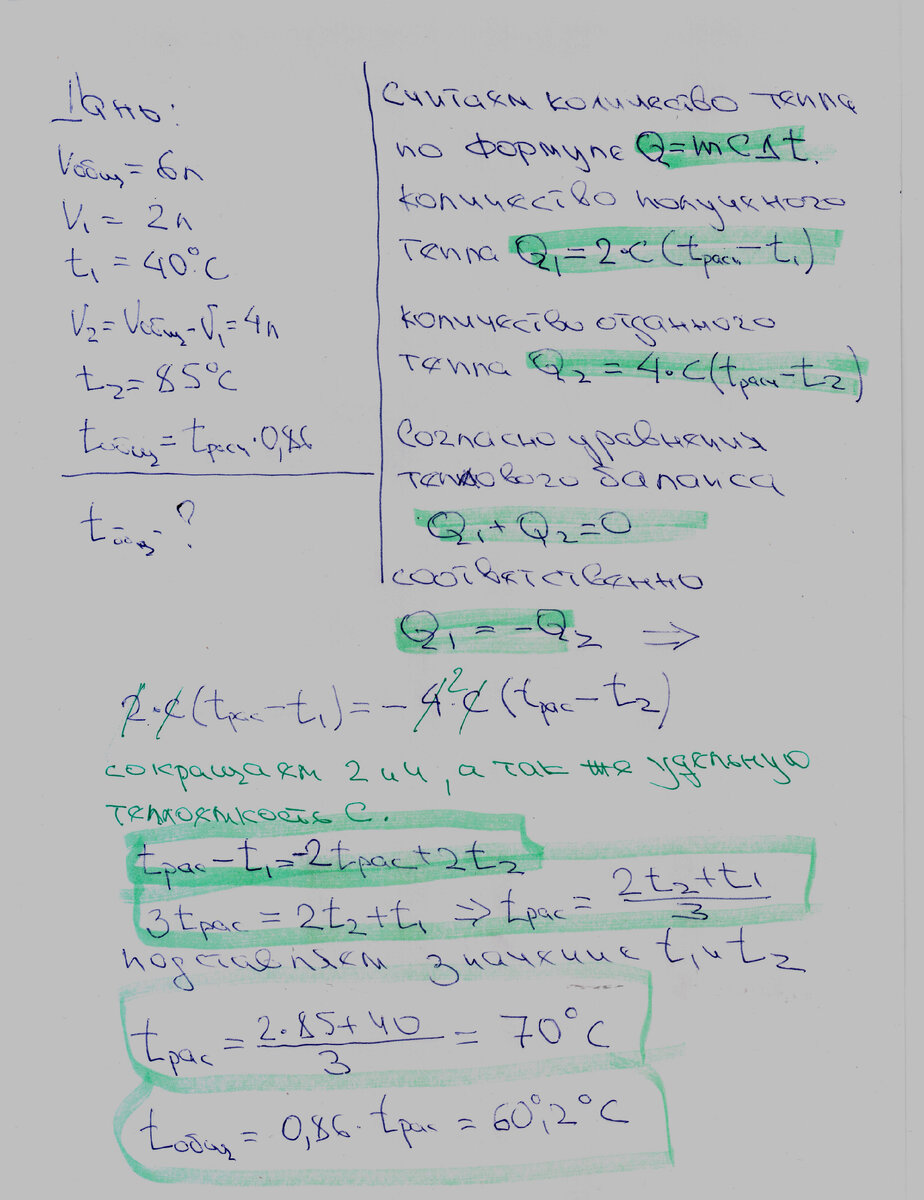 Дано:
Vобщ = 6л
V₁ = 2л
t₁ = 40°C
V₂ = Vобщ - V₁ = 4л
t₂ = 85°C
tобщ = tрасч · 0,86
tобщ - ?
Считаем количество тепла
по формуле Q = mcΔt.
количество полученого
тепла Q₁ = 2·c (tрасч - t₁)
количество отданного
тепла Q₂ = 4·c (tрасч - t₂)
Согласно уравнения
теплового баланса
Q₁ + Q₂ = 0
соответственно
Q₁ = -Q₂ ⇒
2·c (tрас - t₁) = -4² · c (tрас - t₂)
сокращаем 2 и 4, а так же удельную
теплоемкость C.
tрас - t₁ = -2tрас + 2t₂
3tрас = 2t₂ + t₁ ⇒ tрас = (2t₂ + t₁)/3
подставляем значение t₁ и t₂
tрас = (2·85 + 40)/3 = 70°C
tобщ = 0,86 · tрас = 60°,2°C